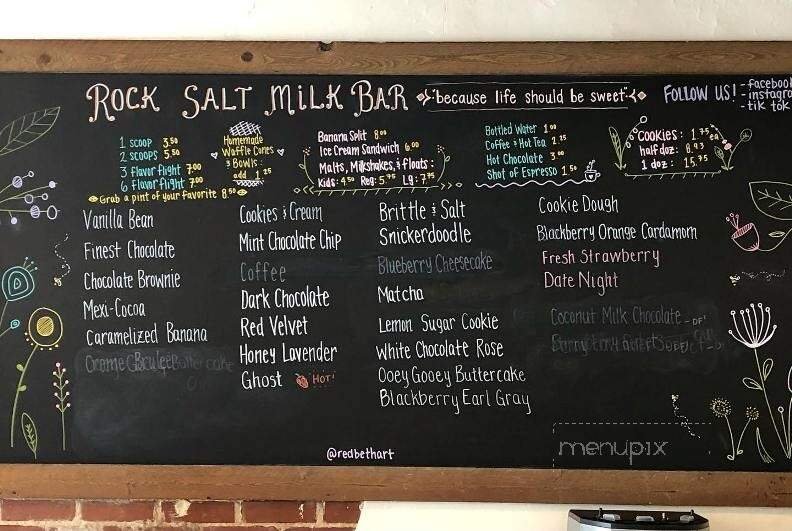 ROCK SALT MILK BAR
because life should be sweet
FOLLOW US!
- facebook
- instagra
- tik tok
1 scoop 3.50
2 scoops 5.50
3 Flavor flight 7.00
6 Flavor flight 7.00
Grab a pint of your favorite 8.50
Homemade
Waffle Cones
& Bowls:
add 1.25
Banana Split 8.00
Ice Cream Sandwich 6.00
Malts, Milkshakes, & floats:
Kids: 4.50 Reg: 5.75 Lg: 7.75
Bottled Water 1.00
Coffee & Hot Tea 2.25
Hot Chocolate 3.00
Shot of Espresso 1.50
Cookies: 1.75 ea
half doz: 8.93
1 doz: 15.75
Vanilla Bean
Finest Chocolate
Chocolate Brownie
Mexi-Cocoa
Caramelized Banana
Cookies & Cream
Mint Chocolate Chip
Coffee
Dark Chocolate
Red Velvet
Honey Lavender
Ghost HOT!
Brittle & Salt
Snickerdoodle
Blueberry Cheesecake
Matcha
Lemon Sugar Cookie
White Chocolate Rose
Ooey Gooey Buttercake
Blackberry Earl Gray
Cookie Dough
Blackberry Orange Cardamom
Fresh Strawberry
Date Night
Coconut Milk Chocolate - DF
@redbethart
menupix